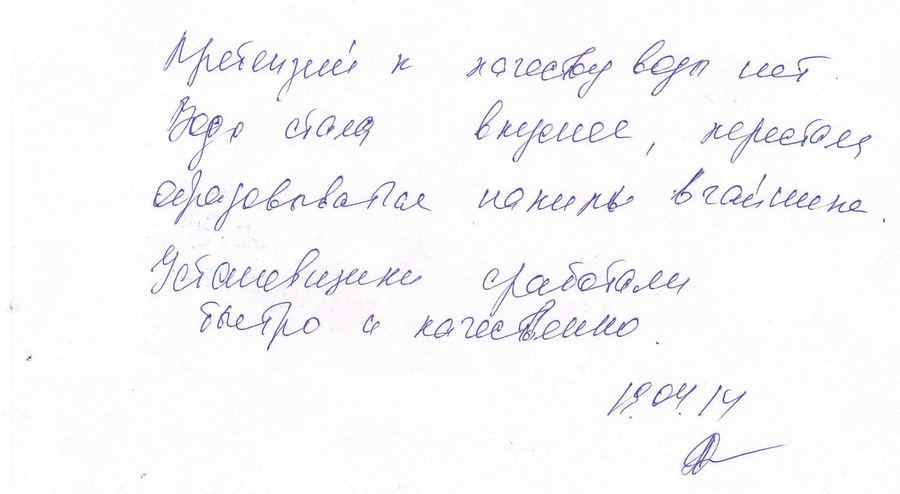 Претензий к качеству воды нет.
Вода стала вкуснее, перестала
образовываться накипь в чайнике.
Установщики сработали
быстро и качественно.
19.04.14